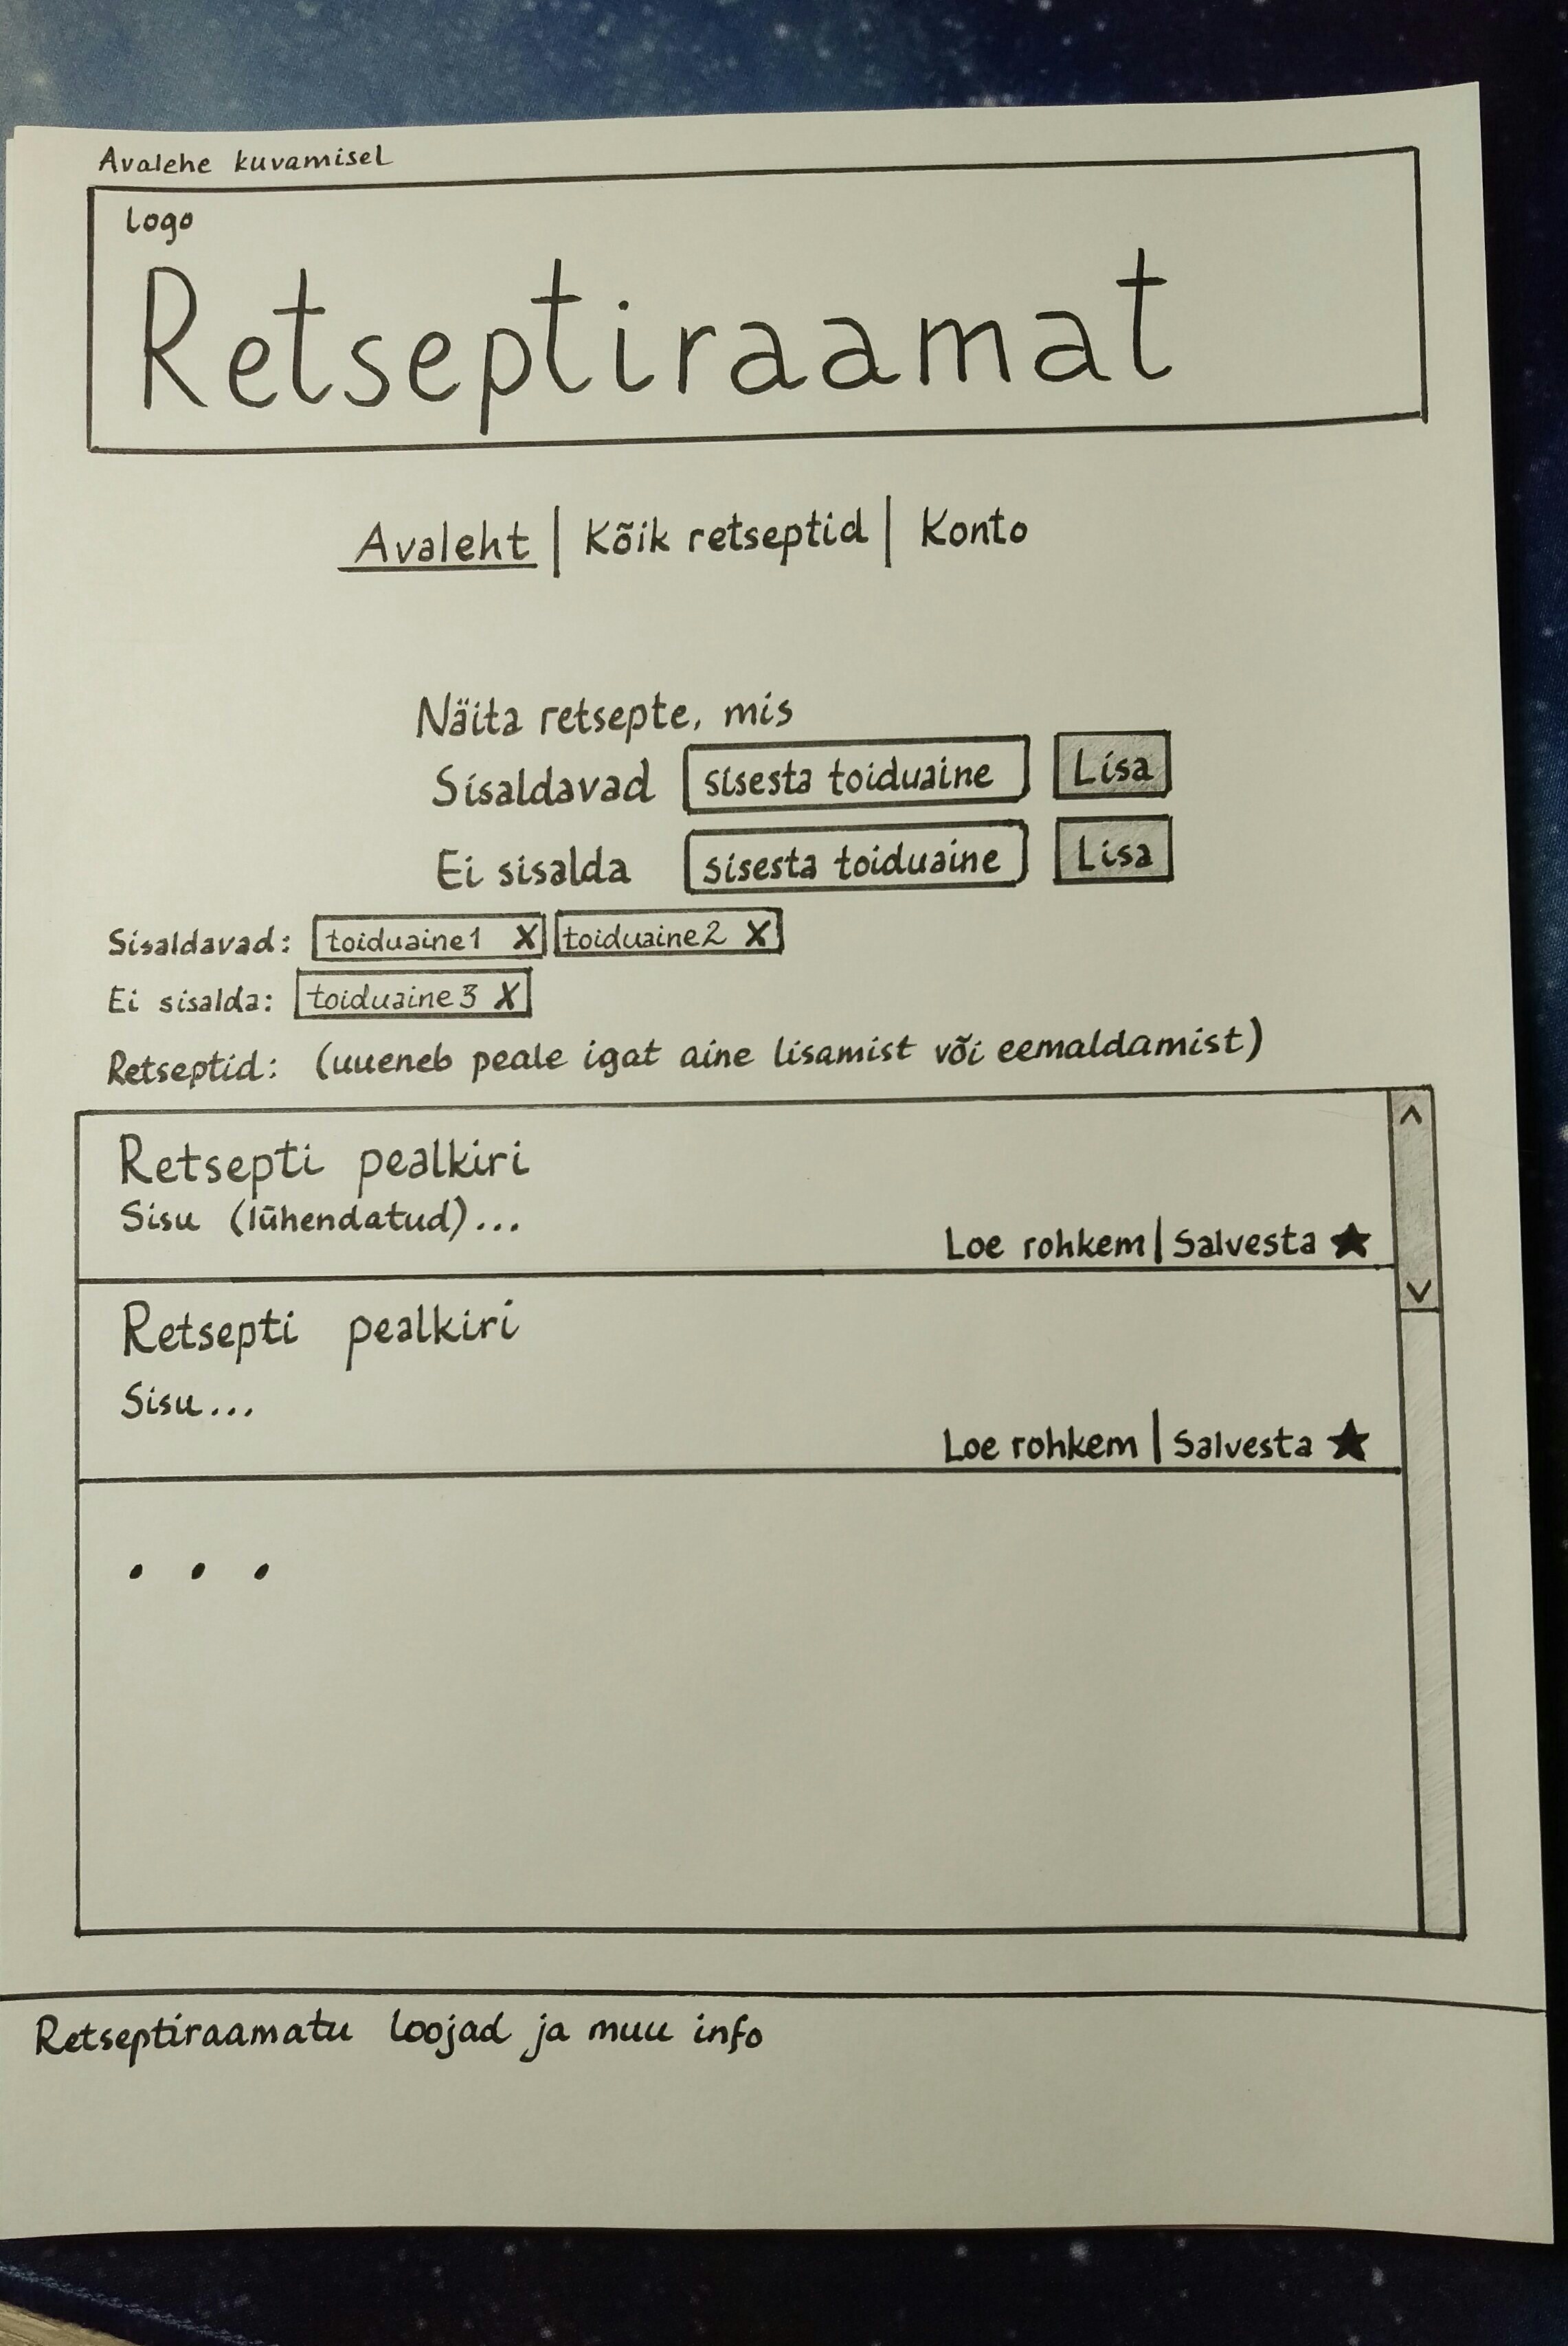 Avalehe kuvamisel
logo
Retseptiraamat
Avaleht | Kõik retseptid | Konto
Näita retsepte, mis
Sisaldavad sisesta toiduaine Lisa
Ei sisalda sisesta toiduaine Lisa
Sisaldavad: toiduaine1 X toiduaine2 X
Ei sisalda: toiduaine3 X
Retseptid: (uueneb peale igat aine lisamist või eemaldamist)
Retsepti pealkiri
Sisu (lühendatud)...
Loe rohkem | Salvesta ★
Retsepti pealkiri
Sisu...
Loe rohkem | Salvesta ★
...
Retseptiraamatu loojad ja muu info